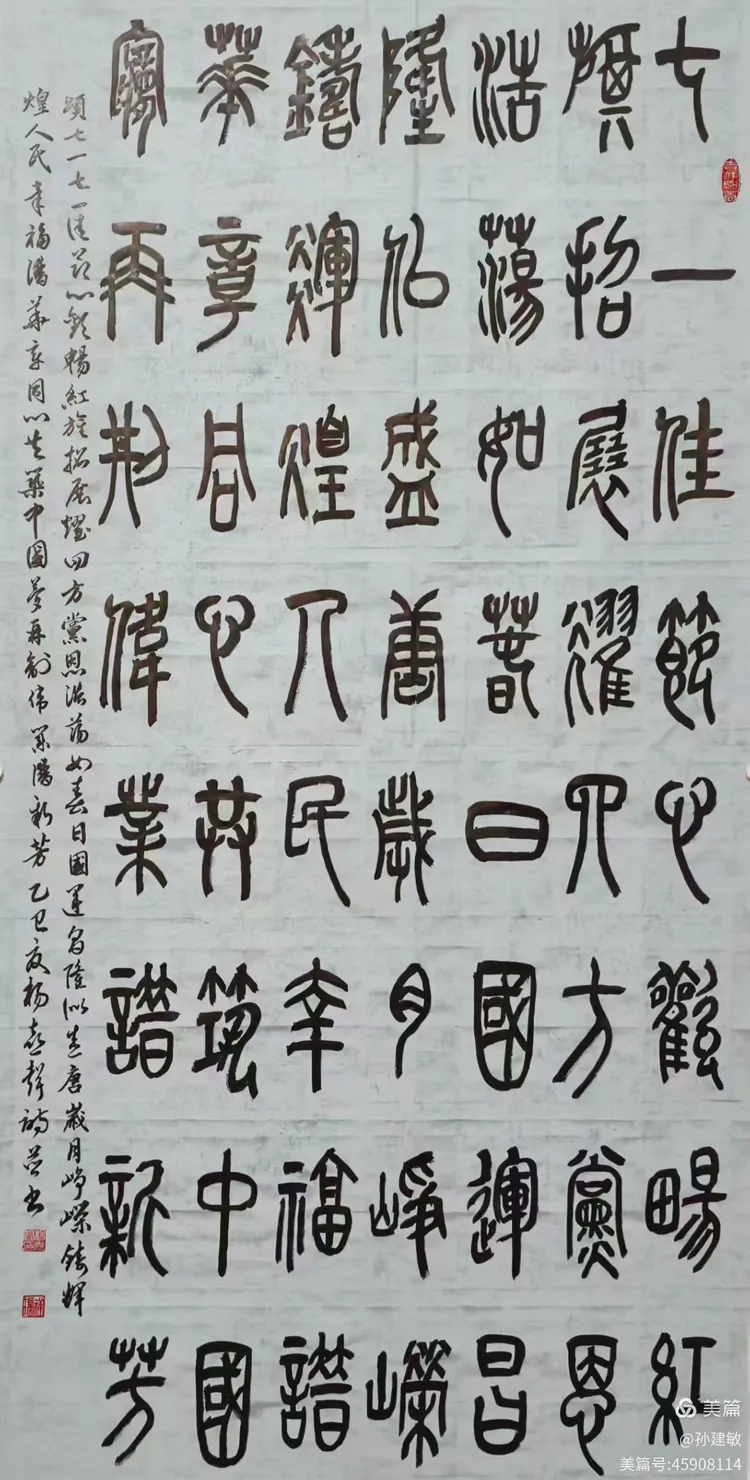 七一佳節心歡暢紅
旗招展耀四方黨恩
浩蕩如春日國運昌
隆似盛唐歲月崢嶸
鑄輝煌人民幸福譜
華章同心共築中國
夢再創偉業譜新芳
頌七一七一佳节心歡暢紅旗招展耀四方黨恩浩蕩如春日國運昌隆似盛唐歲月崢嶸鑄輝
煌人民幸福譜華章同心共築中國夢再創伟業譜新芳乙巳夏杨聲诗并书
美篇
@孙建敏
美篇号:45908114